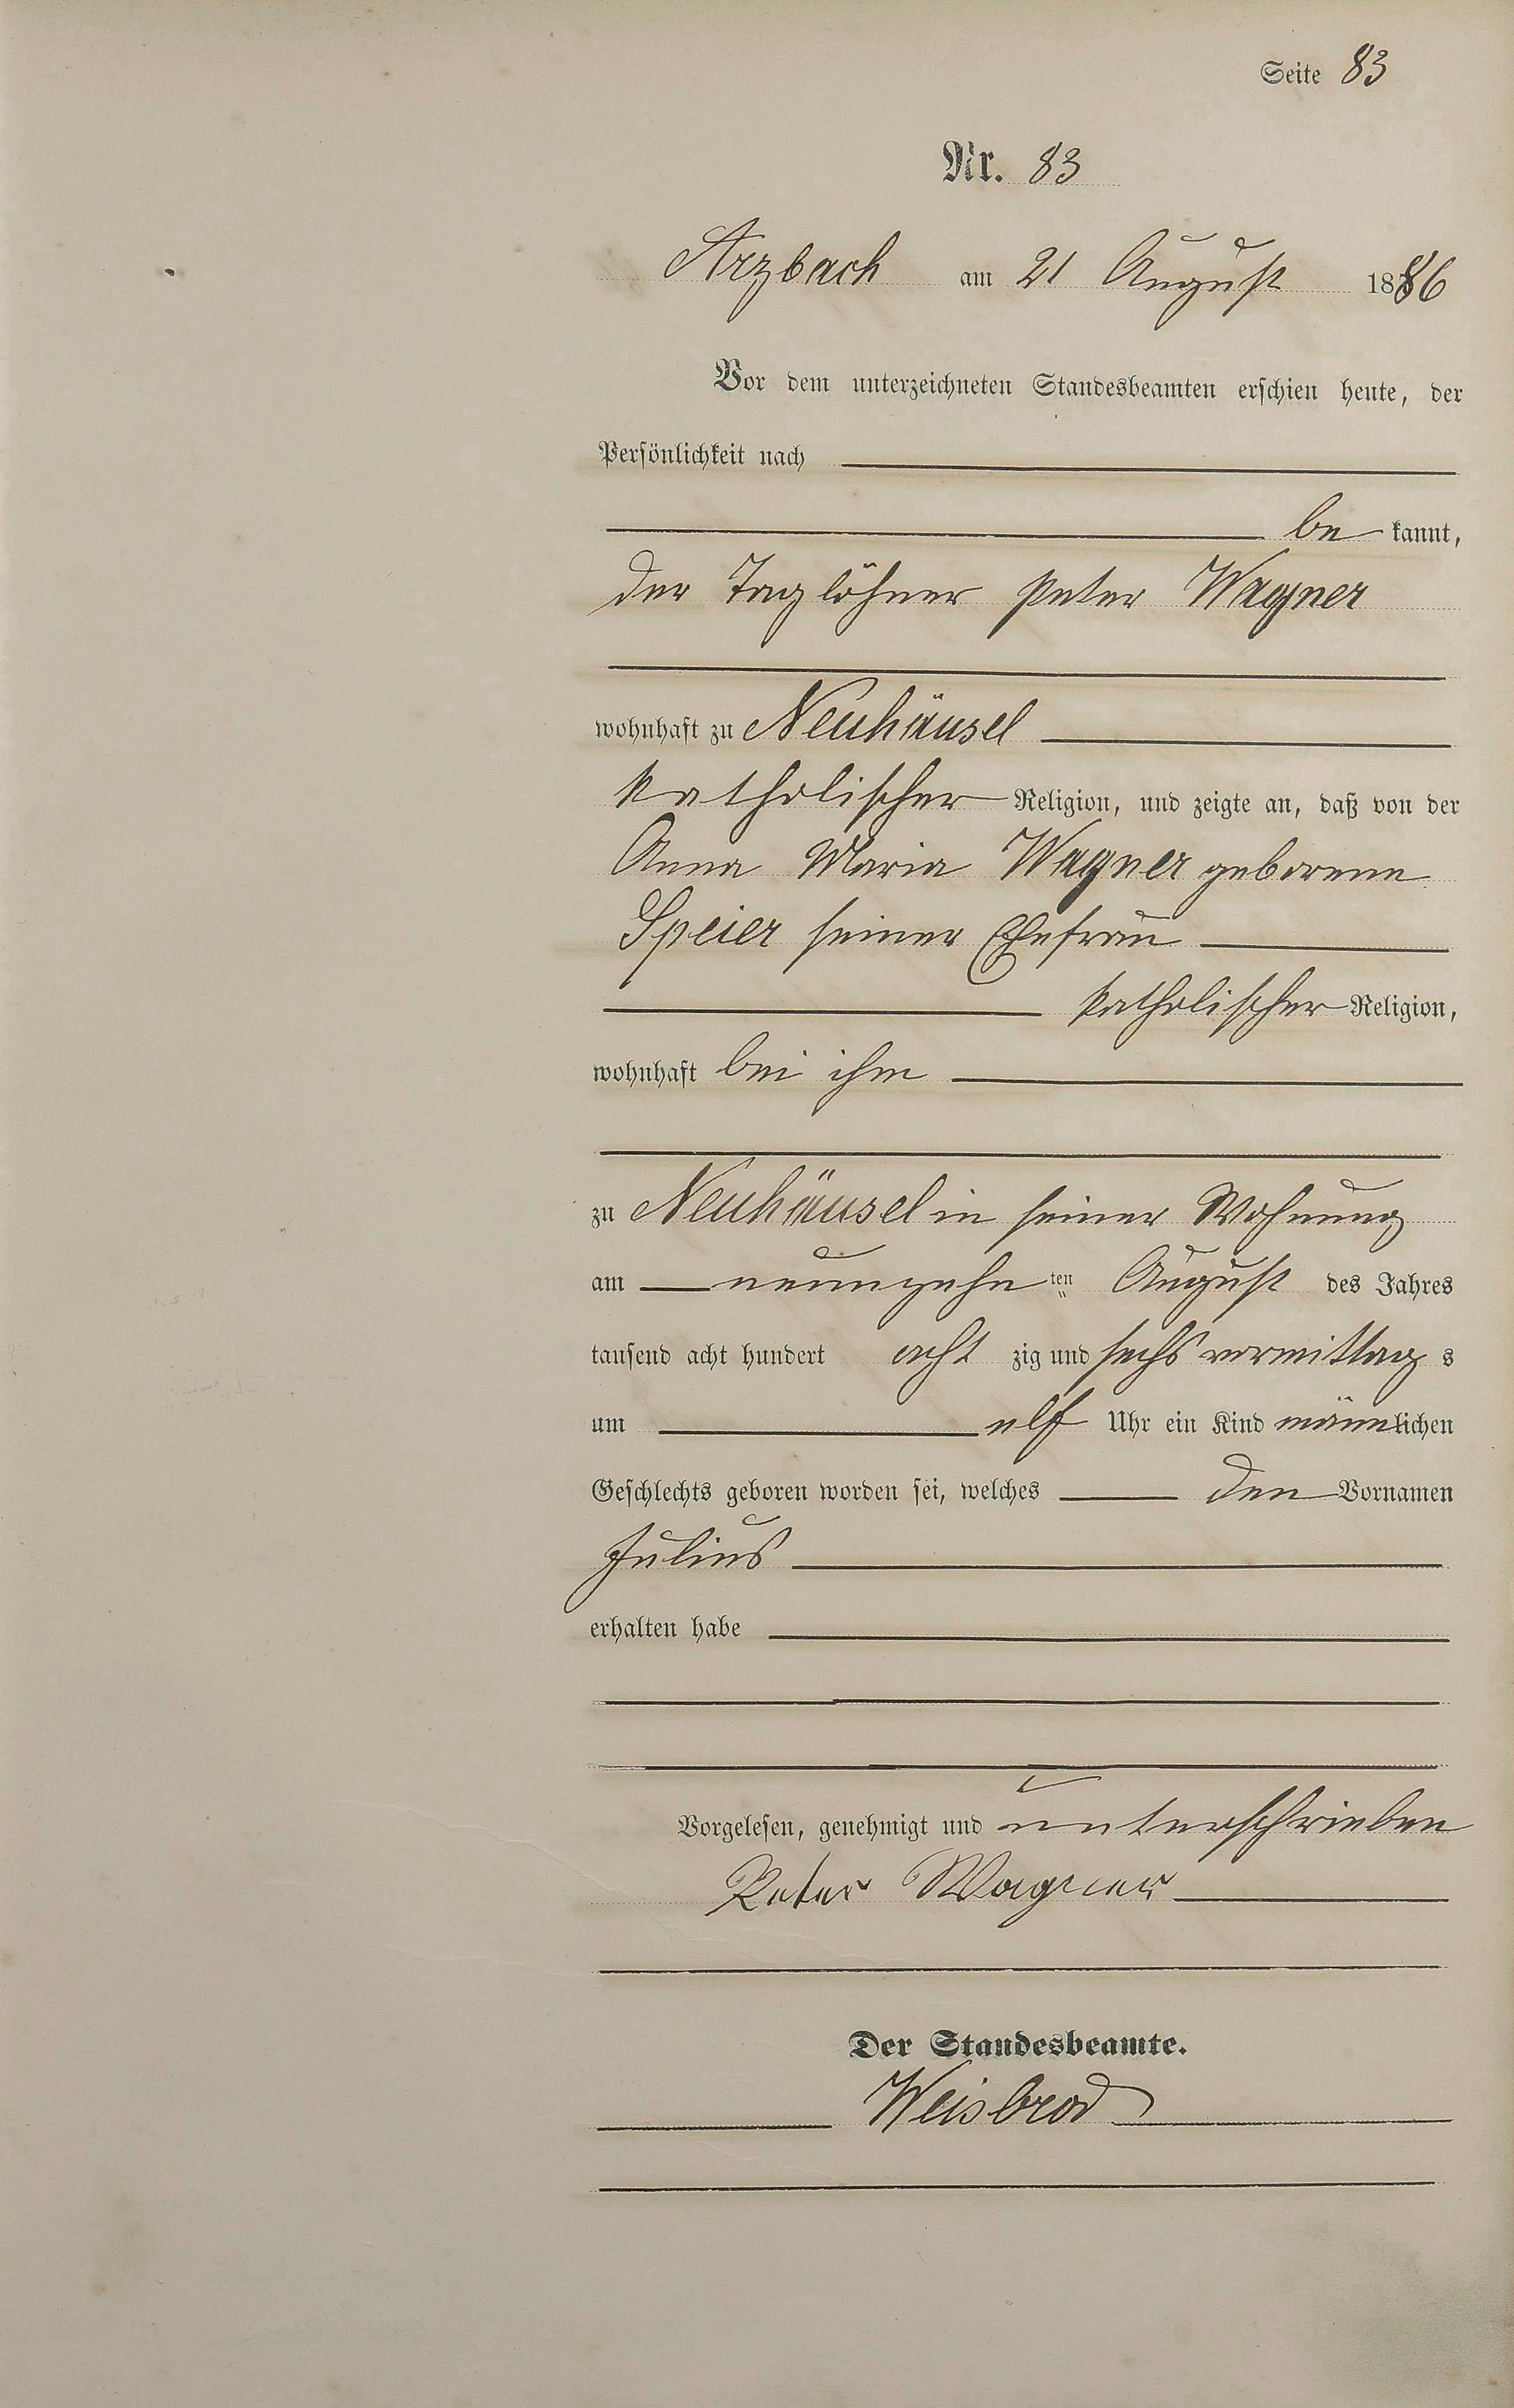 Seite 83
Nr. 83
Arzbach am 21 August 1886
Vor dem unterzeichneten Standesbeamten erschien heute, der
Persönlichkeit nach
be kannt,
der Taglöhner Peter Wagner
wohnhaft zu Neuhäusel
katholischer Religion, und zeigte an, daß von der
Anna Maria Wagner geborene
Speier seiner Ehefrau
katholischer Religion,
wohnhaft bei ihm
zu Neuhäusel in seiner Wohnung
am neunzehn ten August des Jahres
tausend acht hundert acht zig und sechs vormittag s
um elf Uhr ein Kind männlichen
Geschlechts geboren worden sei, welches den Vornamen
Julius
erhalten habe
Vorgelesen, genehmigt und unterschrieben
Peter Wagner
Der Standesbeamte.
Weisbrod